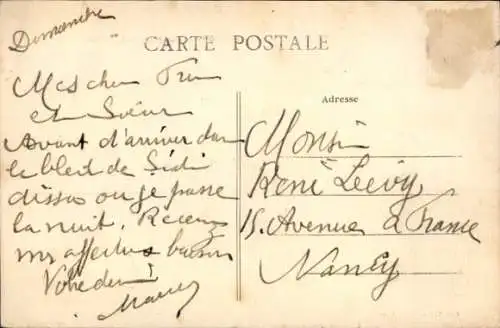 Dimanche
CARTE POSTALE
Mes chers Frère
et Sœur
Avant d'arriver dans
le bled de Sidi
dissas où je passe
la nuit. Recevez
mes affectueux baisers
Votre
Adresse
Monsieur
René Lévy
15, Avenue de France
Nancy